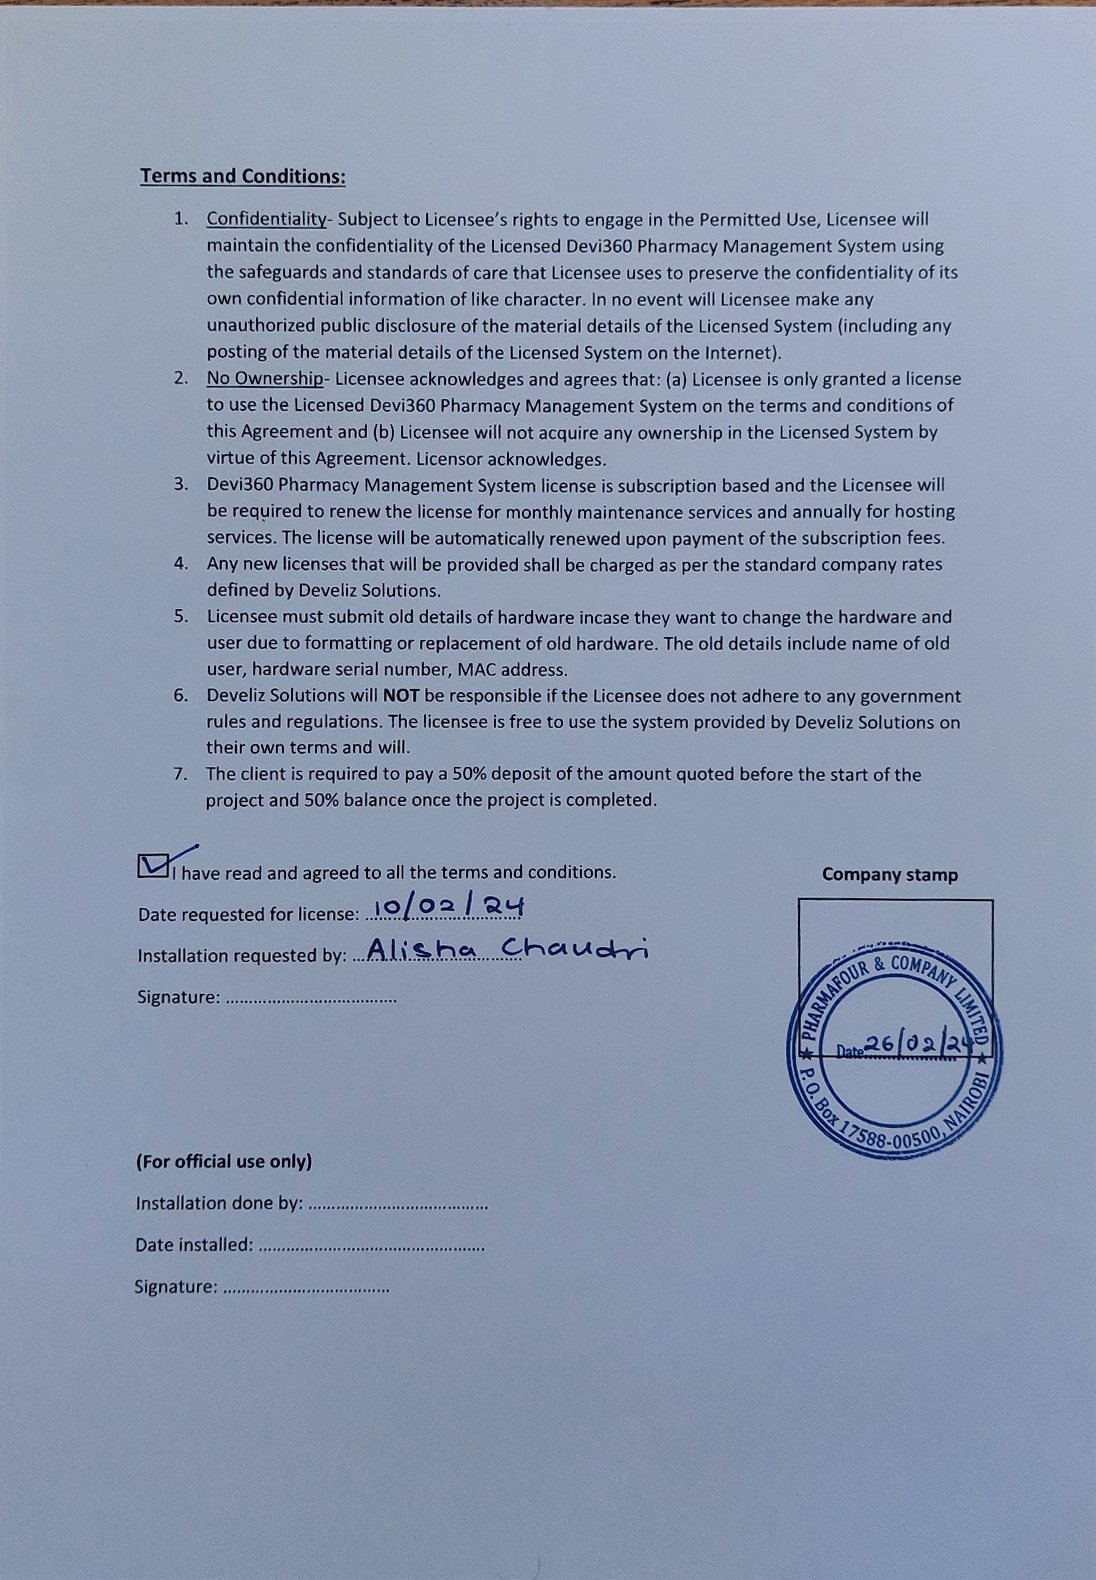 Terms and Conditions:
1. Confidentiality- Subject to Licensee's rights to engage in the Permitted Use, Licensee will
maintain the confidentiality of the Licensed Devi360 Pharmacy Management System using
the safeguards and standards of care that Licensee uses to preserve the confidentiality of its
own confidential information of like character. In no event will Licensee make any
unauthorized public disclosure of the material details of the Licensed System (including any
posting of the material details of the Licensed System on the Internet).
2. No Ownership- Licensee acknowledges and agrees that: (a) Licensee is only granted a license
to use the Licensed Devi360 Pharmacy Management System on the terms and conditions of
this Agreement and (b) Licensee will not acquire any ownership in the Licensed System by
virtue of this Agreement. Licensor acknowledges.
3. Devi360 Pharmacy Management System license is subscription based and the Licensee will
be required to renew the license for monthly maintenance services and annually for hosting
services. The license will be automatically renewed upon payment of the subscription fees.
4. Any new licenses that will be provided shall be charged as per the standard company rates
defined by Develiz Solutions.
5. Licensee must submit old details of hardware incase they want to change the hardware and
user due to formatting or replacement of old hardware. The old details include name of old
user, hardware serial number, MAC address.
6. Develiz Solutions will NOT be responsible if the Licensee does not adhere to any government
rules and regulations. The licensee is free to use the system provided by Develiz Solutions on
their own terms and will.
7. The client is required to pay a 50% deposit of the amount quoted before the start of the
project and 50% balance once the project is completed.
I have read and agreed to all the terms and conditions.
Date requested for license: 10/02/24
Installation requested by: Alisha Chaudri
Signature: ....................................
Company stamp
PHARMAFOUR & COMPANY LIMITED
Date 26/02/24
P. O. Box 17588-00500, NAIROBI
(For official use only)
Installation done by: ......................................
Date installed: ................................................
Signature: ...................................